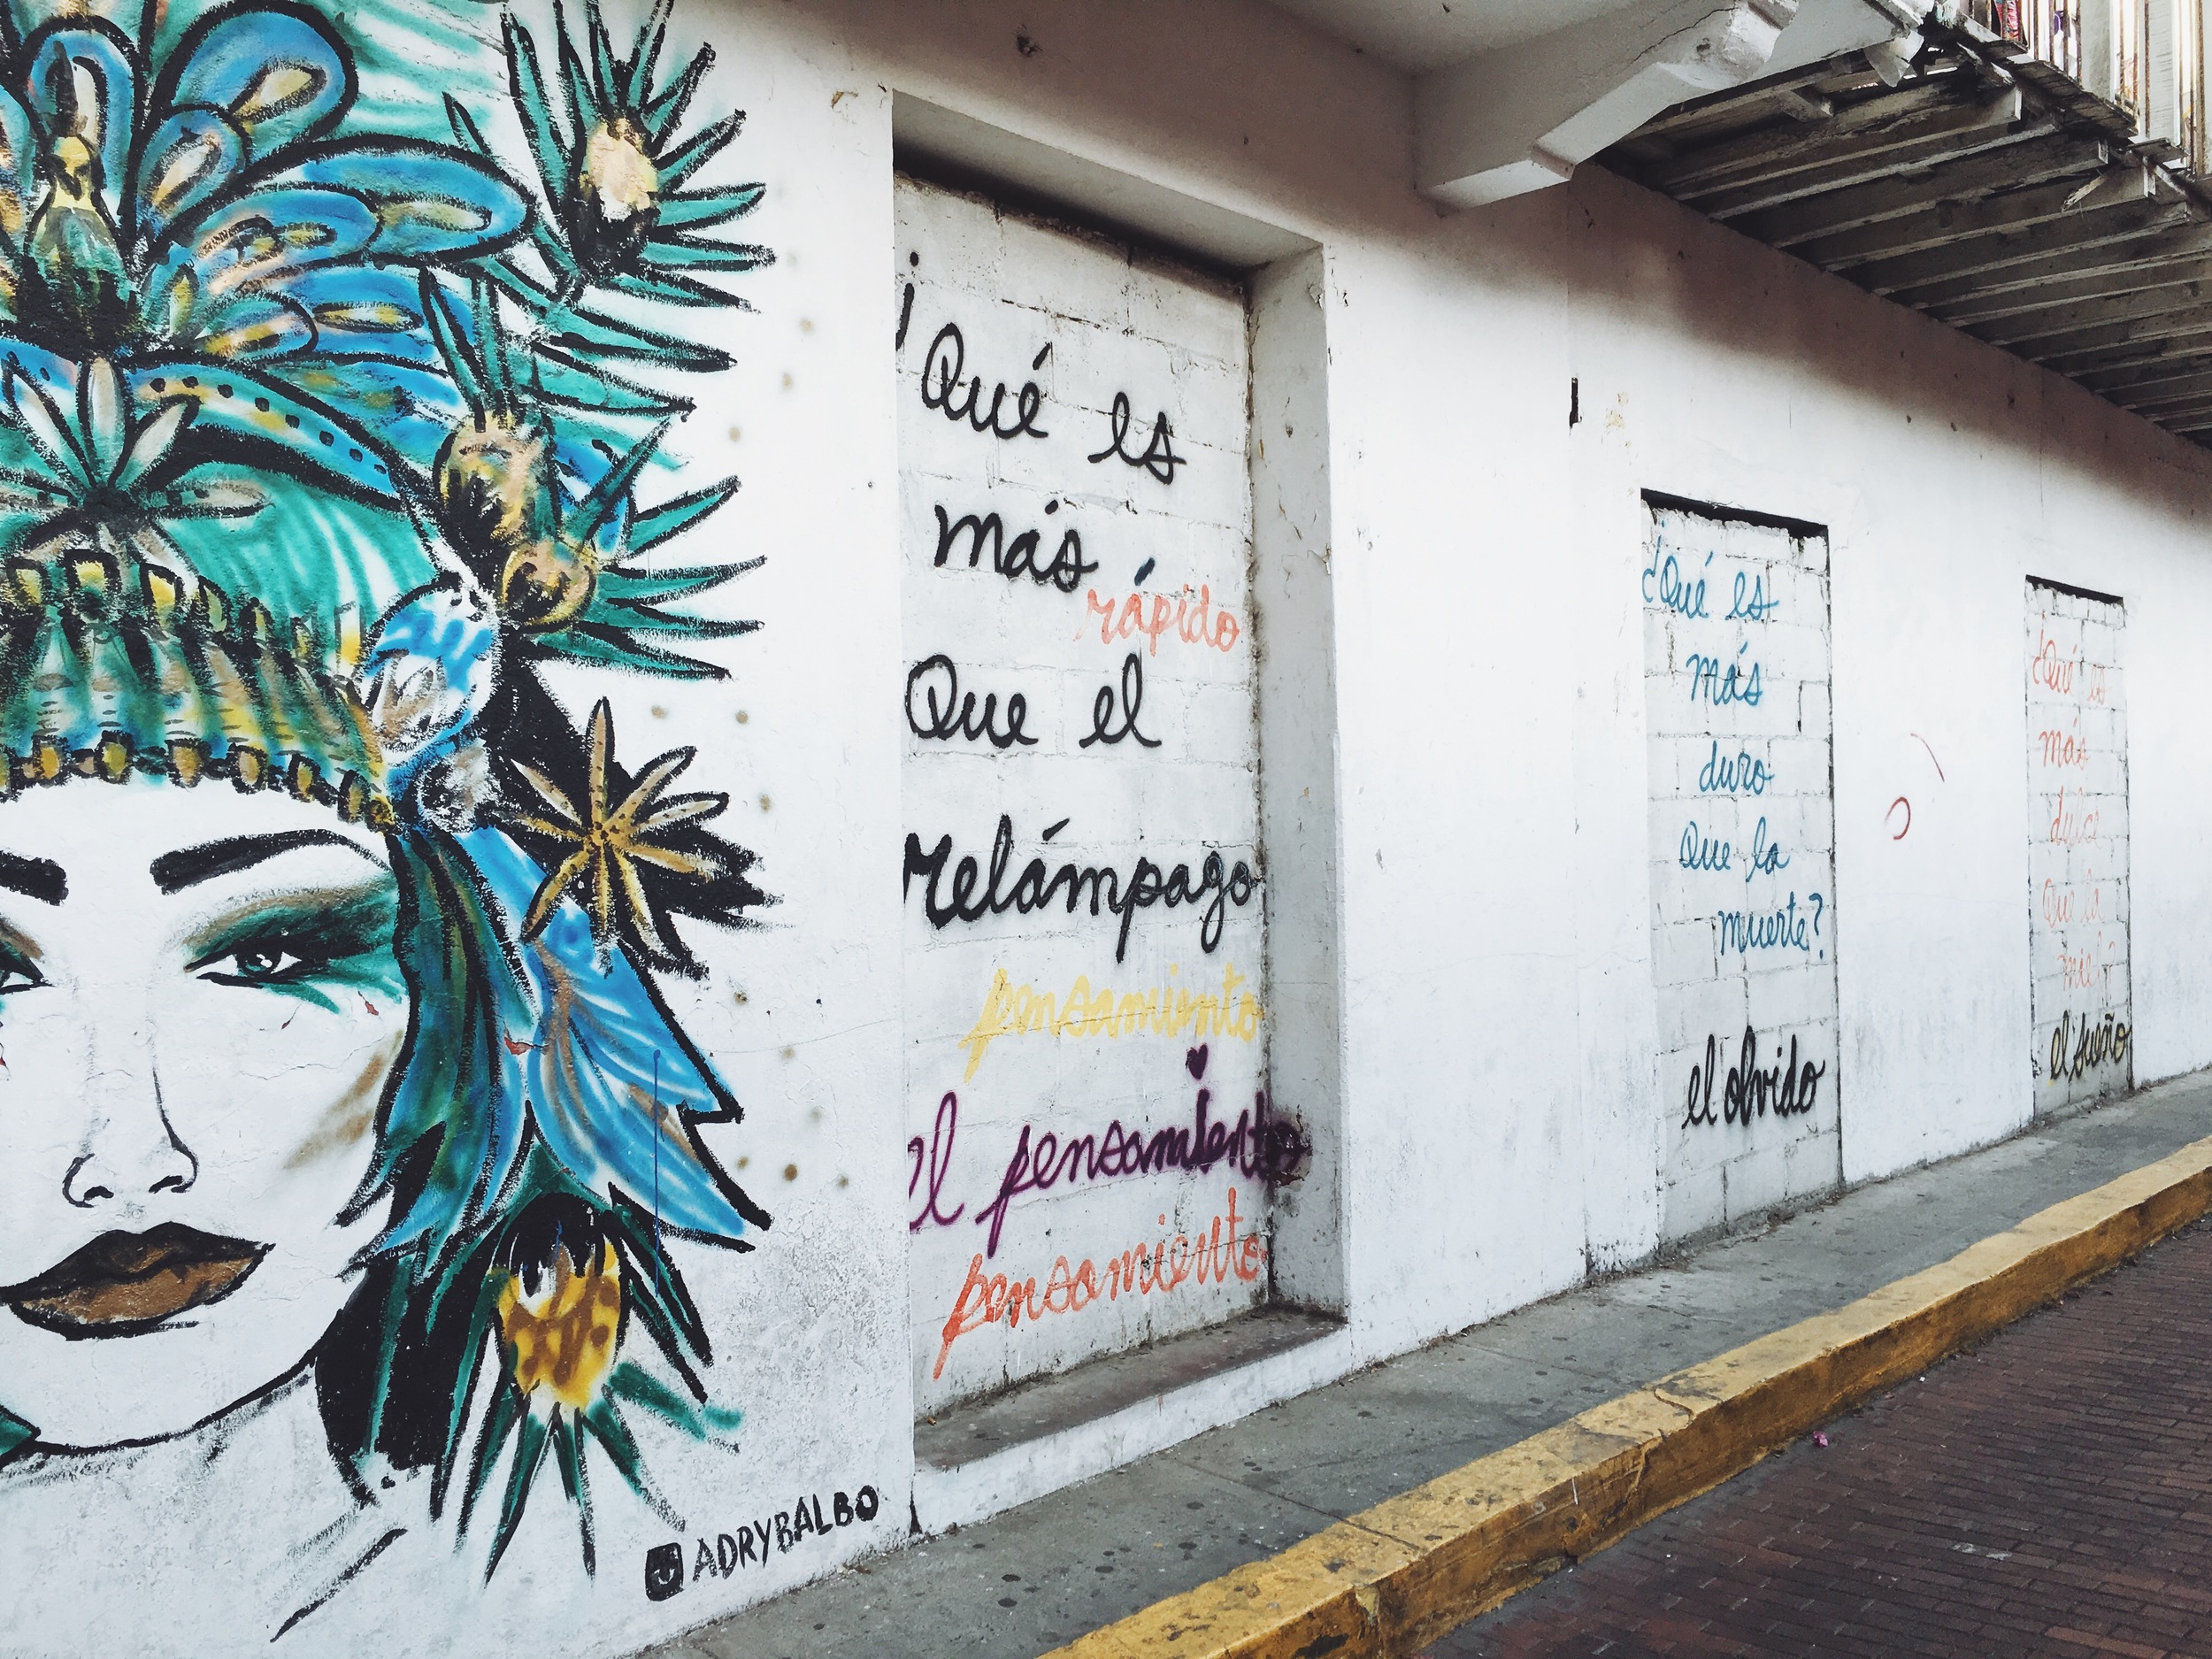 ¿Qué es
más
rápido
Que el
relámpago
pensamiento
el pensamiento
pensamiento
ADRYBALBO
¿Qué es
más
duro
Que la
muerte?
el olvido
¿Qué es
más
dulce
Que la
miel?
el sueño